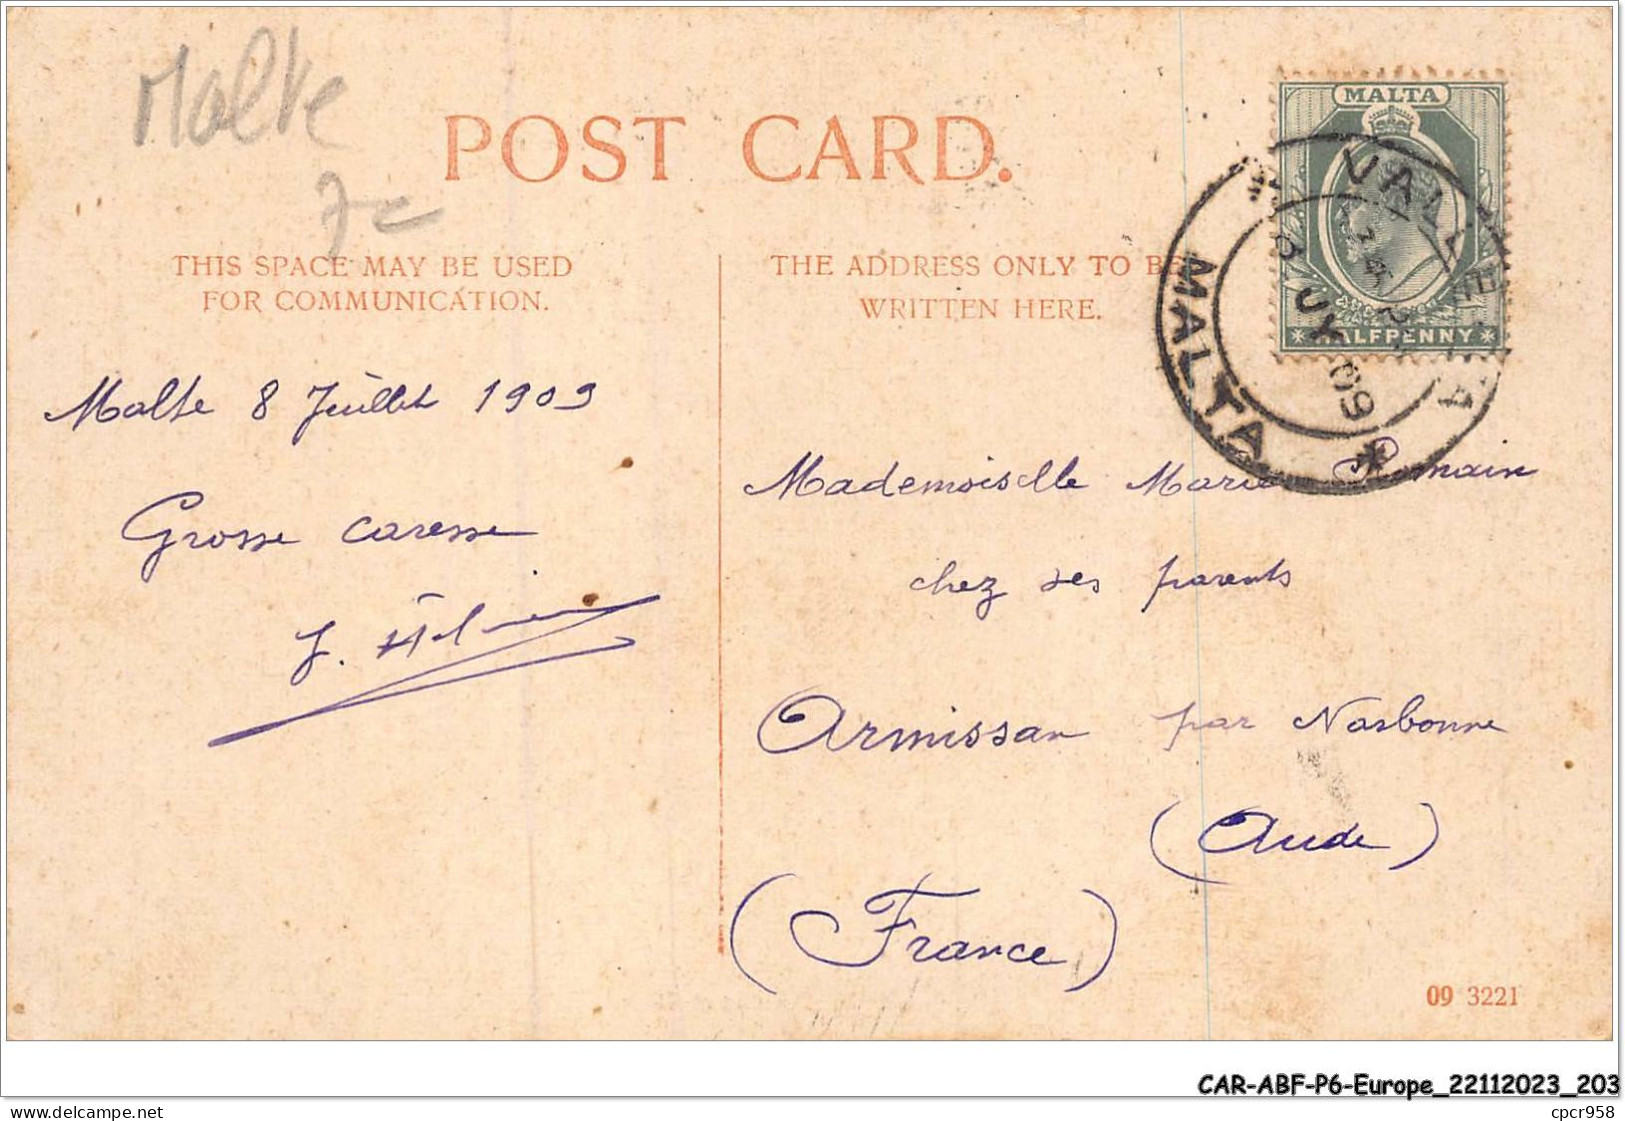 Malte
7e
POST CARD.
MALTA
HALFPENNY
VALLETTA
MALTA
8 JY 09
THIS SPACE MAY BE USED
FOR COMMUNICATION.
THE ADDRESS ONLY TO BE
WRITTEN HERE.
Malte 8 Juillet 1909
Grosse caresse
J.
Mademoiselle Marie Romain
chez ses parents
Armissan par Narbonne
(Aude)
(France)
09 3221
CAR-ABF-P6-Europe_22112023_203
les-cartes-de-theo
cpcr958